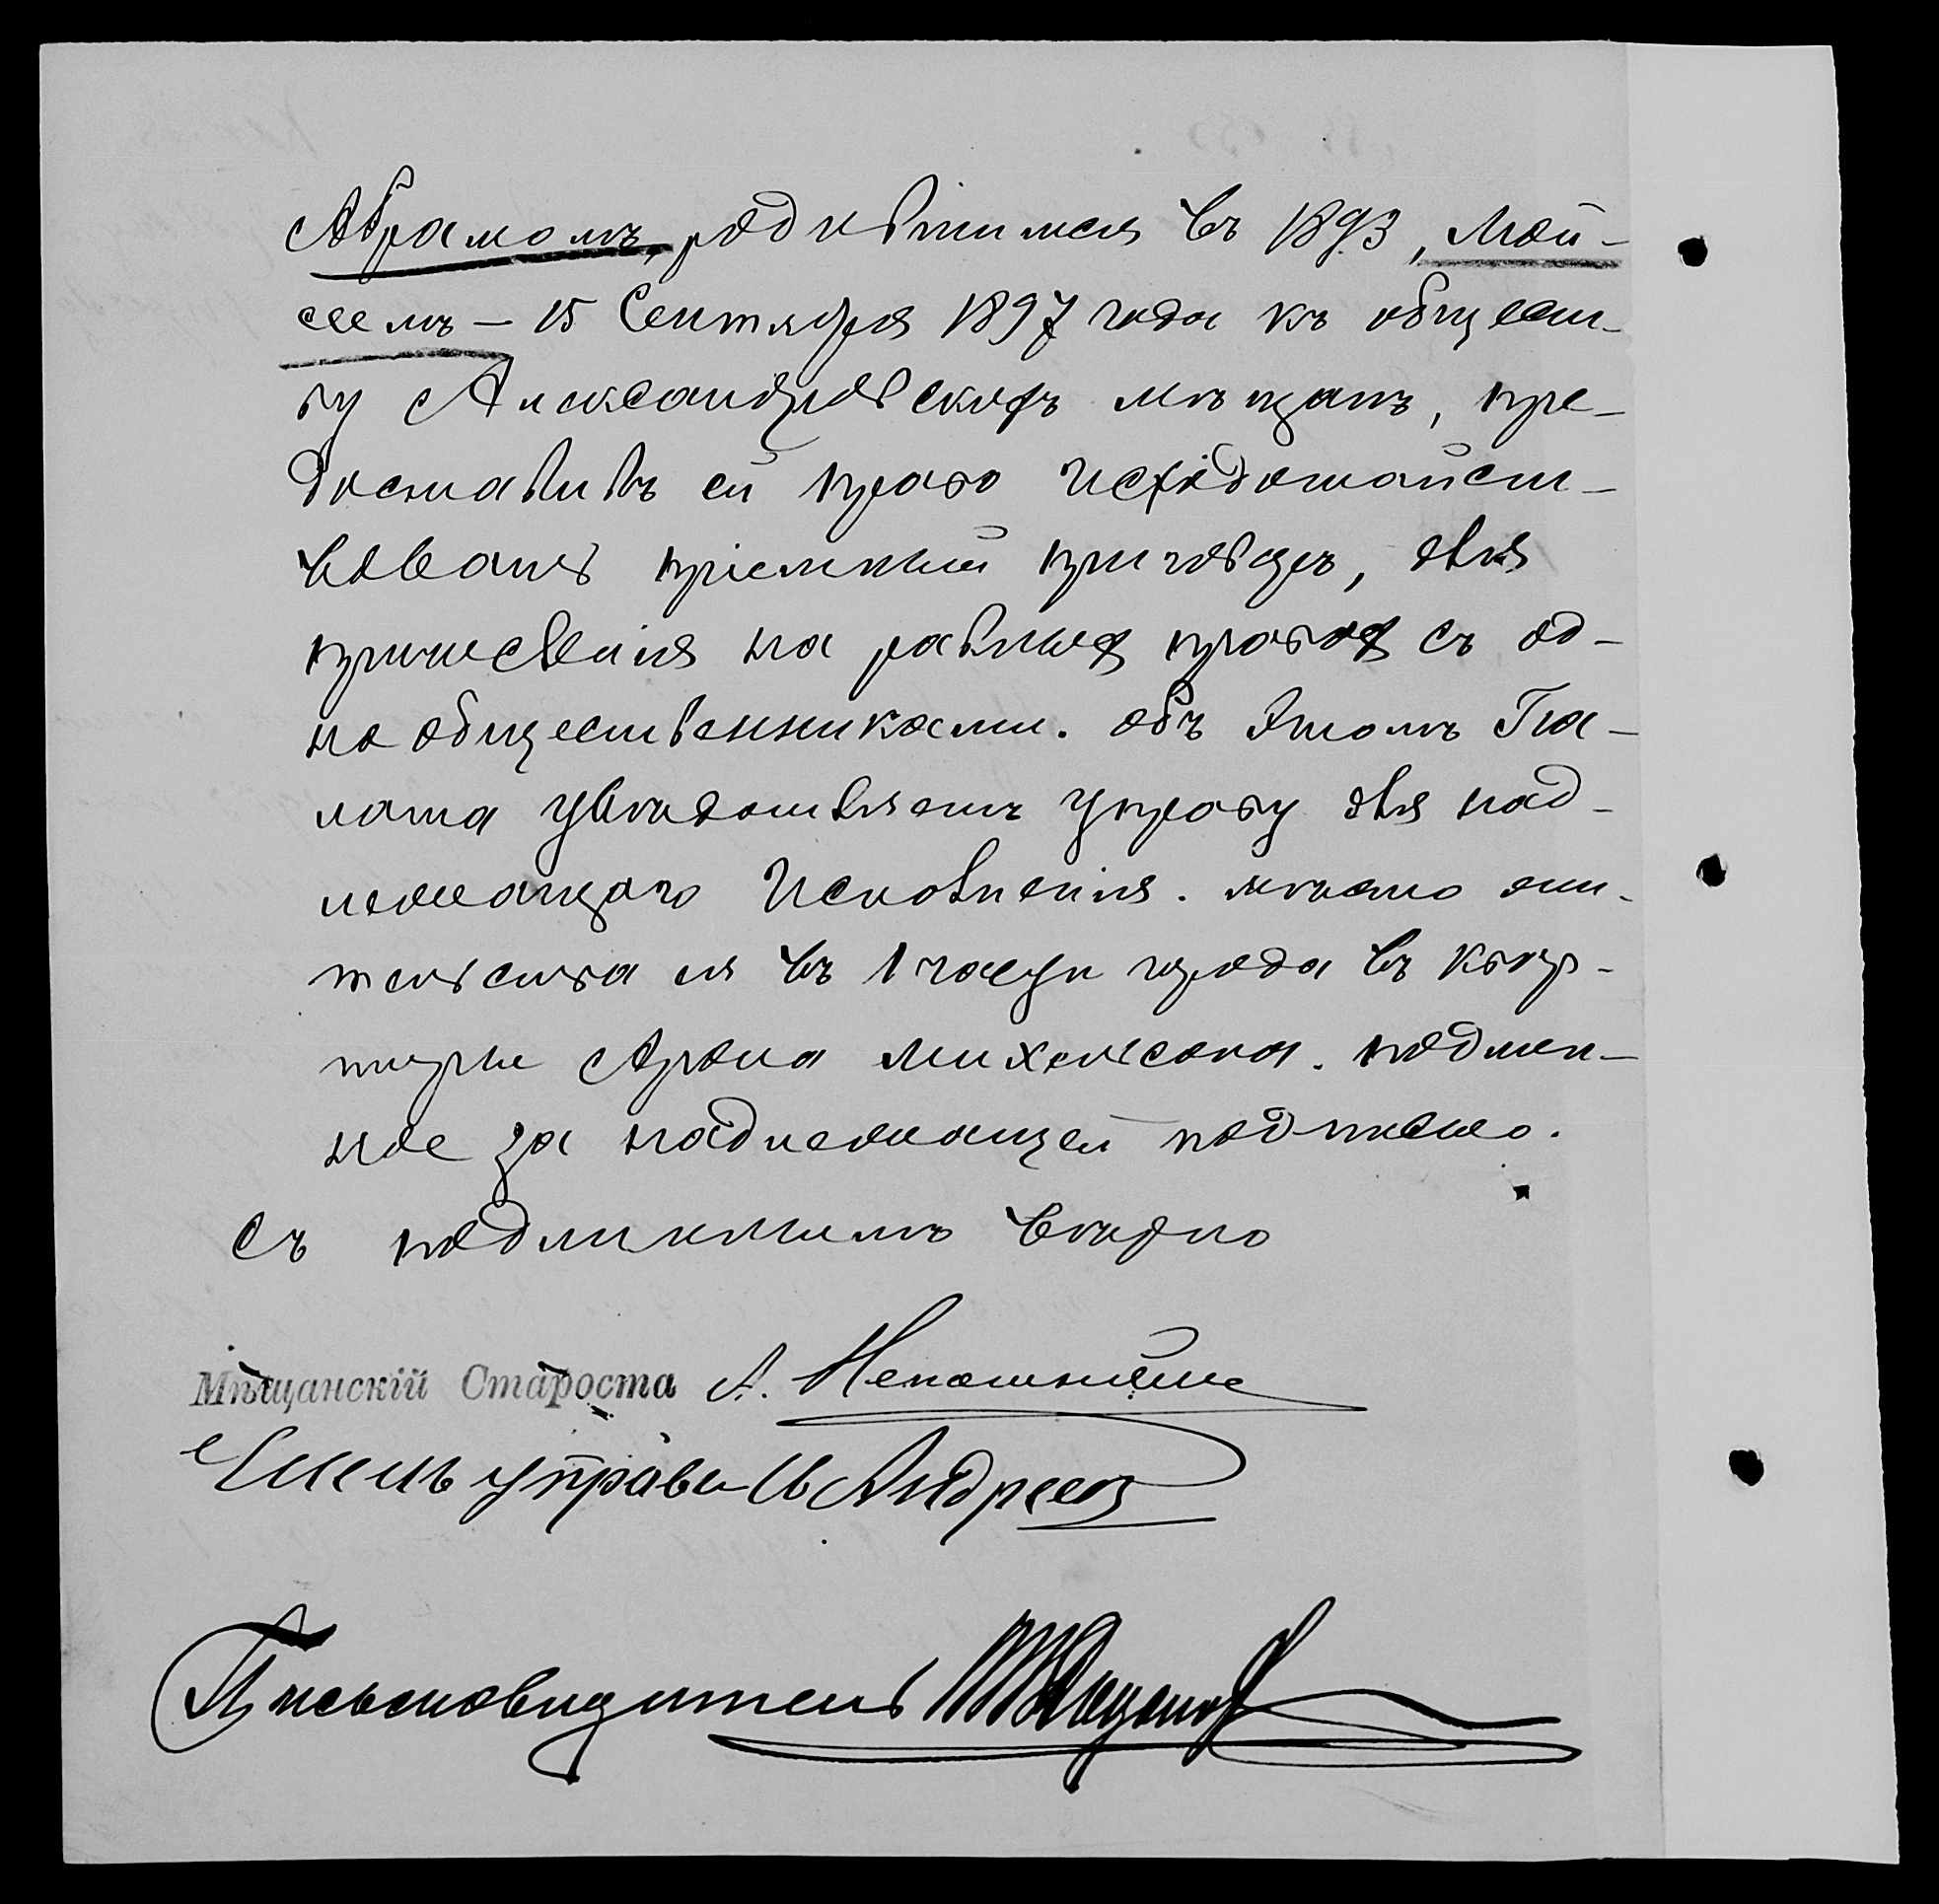 Абрамомъ, родившимся въ 1893, Мой-
сеемъ – 15 Сентября 1897 года къ общест-
ву Александровскихъ мѣщанъ, пре-
доставивъ ей право исходотайст-
вовать пріемный приговоръ, для
причисленія на равныхъ правахъ съ од-
нообщественниками. объ этомъ Па-
лата увѣдомляетъ управу для над-
лежащаго исполненія. мѣсто жи-
тельства ея въ 1 части города въ квар-
тирѣ Арона Михельсона. подлин-
ное за надлежащей подписью.
съ подлиннымъ вѣрно
Мѣщанскій Староста А.
Членъ управы Андреев
Письмоводитель